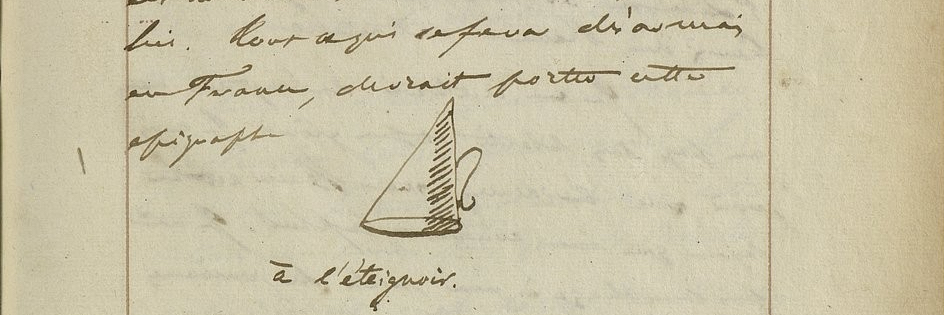 lui. Tout ce qui se fera désormais
en France, devrait porter cette
épigraphe
à l'éteignoir.